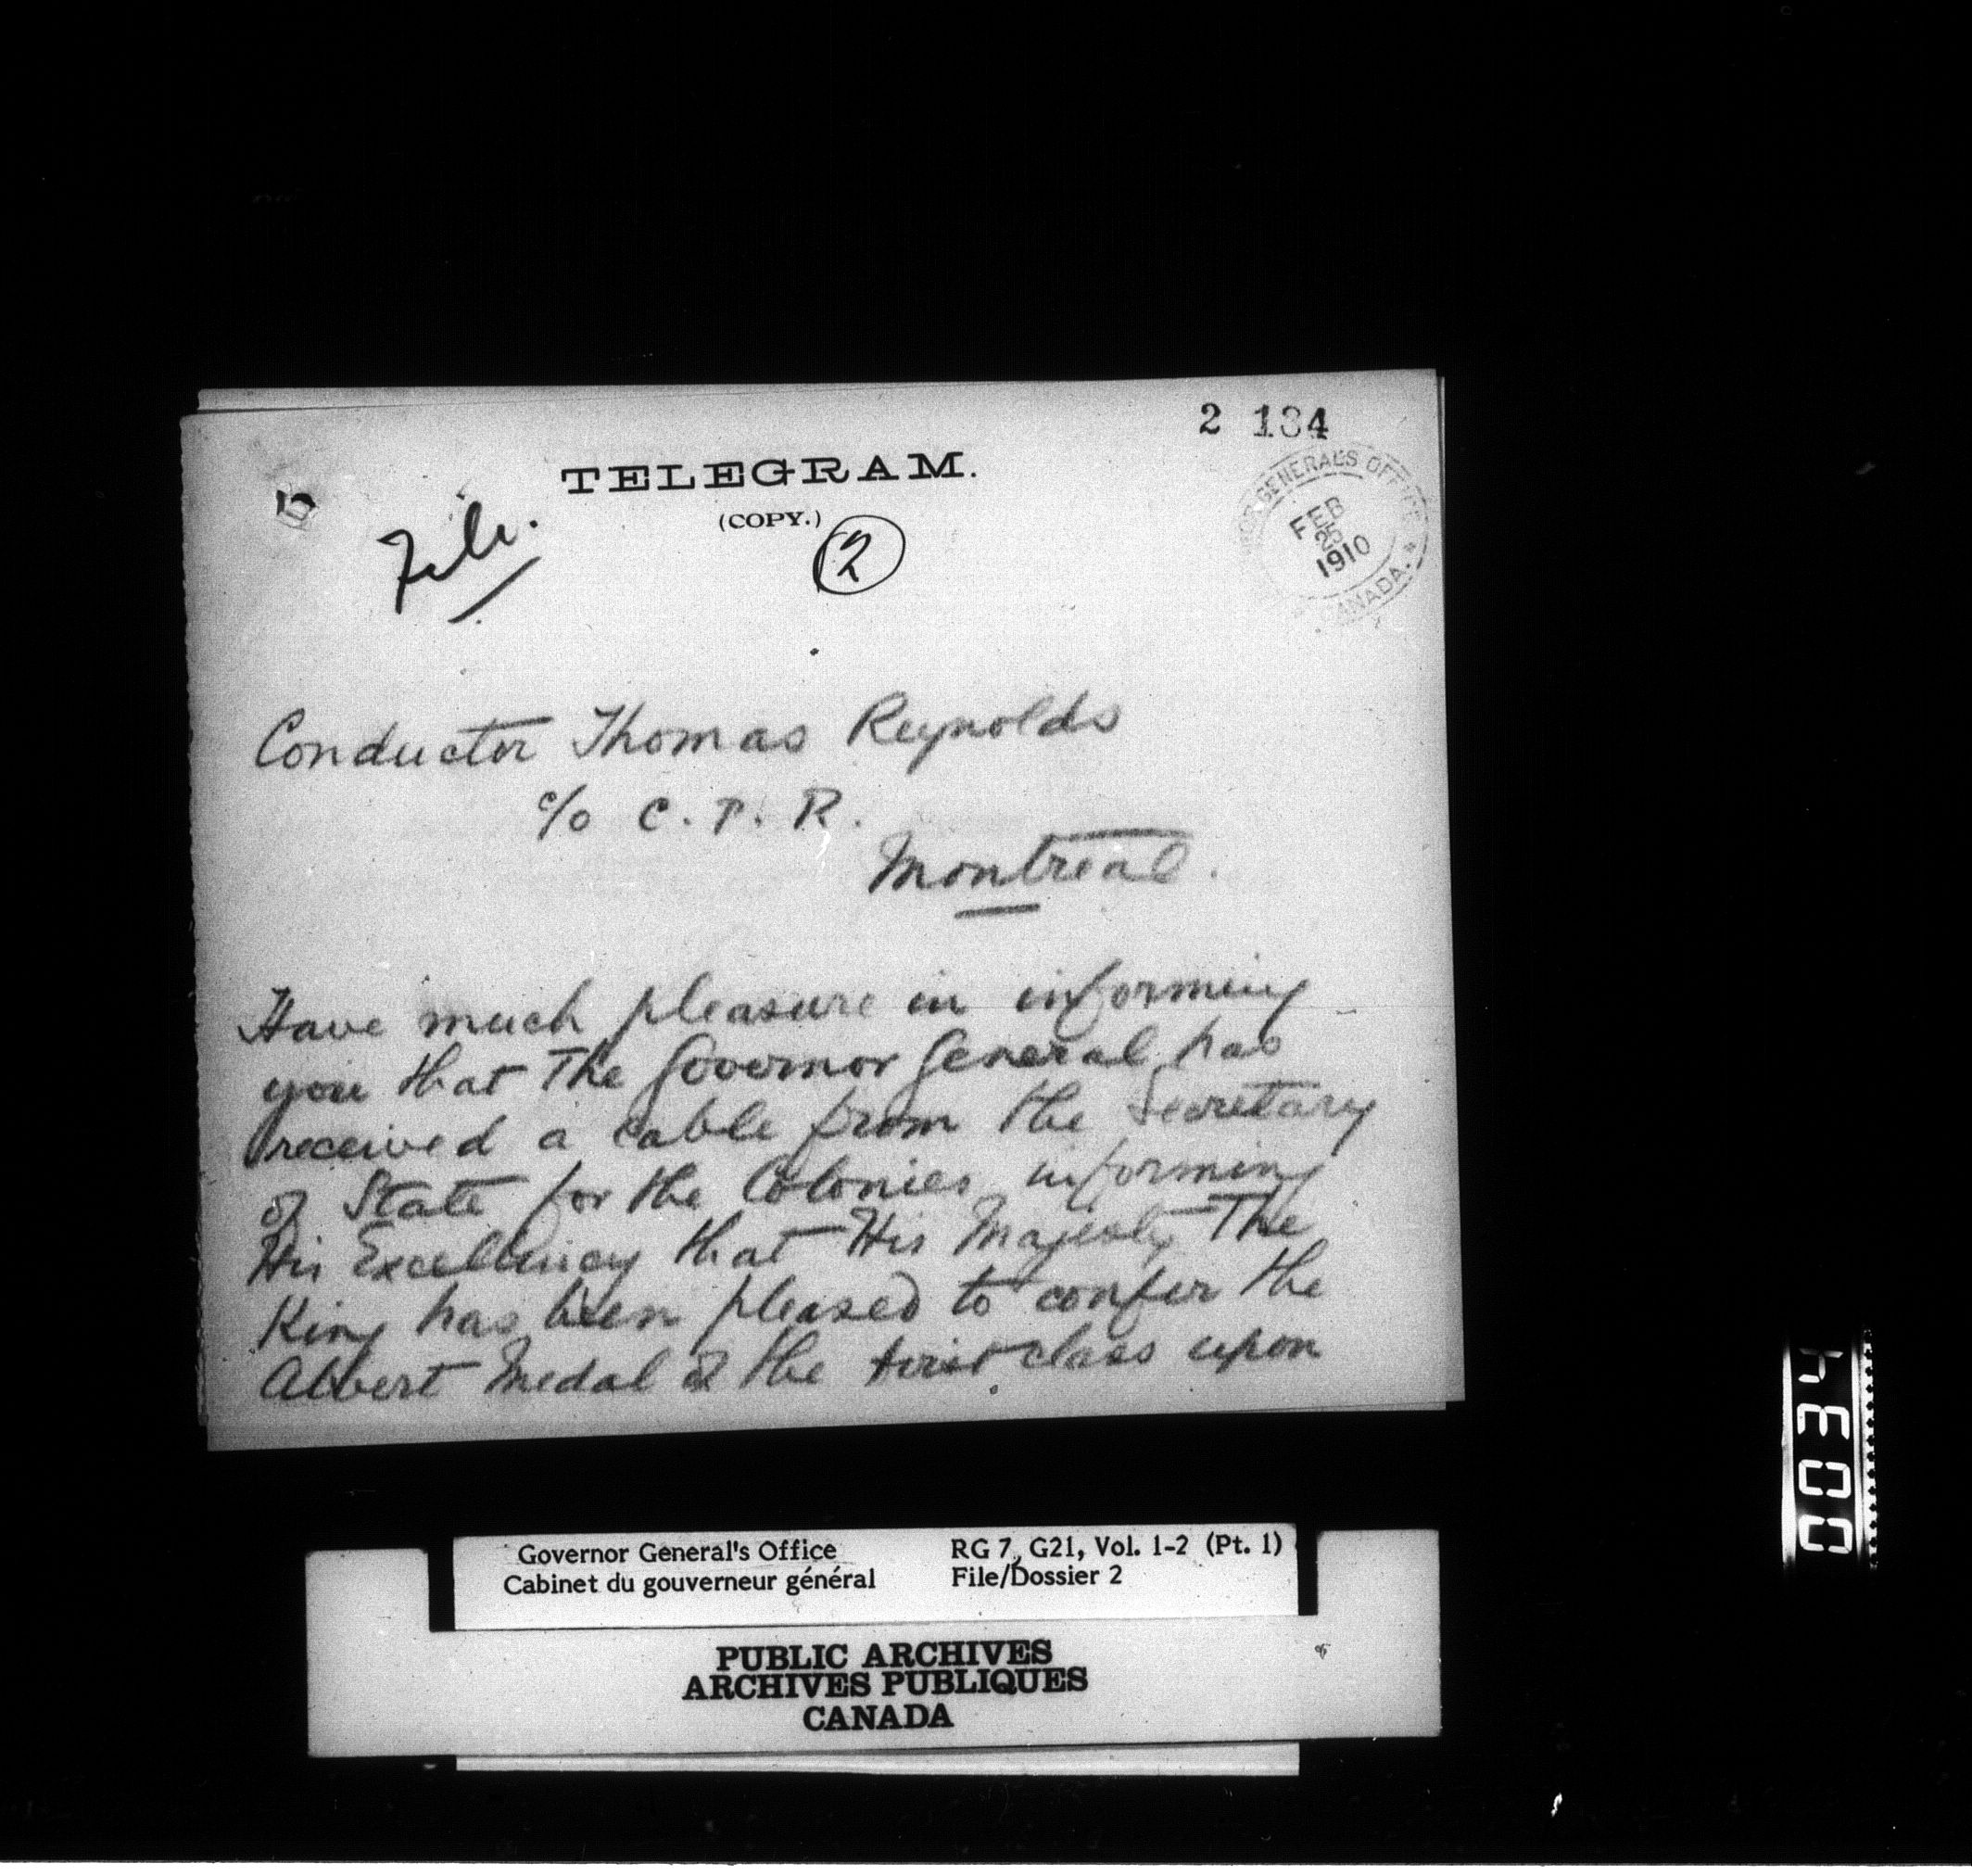 2 134
TELEGRAM.
(COPY.)
5
File.
2
GENERAL'S OFFICE
FEB
25
1910
CANADA.
Conductor Thomas Reynolds
c/o C. P. R.
Montreal.
Have much pleasure in informing
you that The Governor General has
received a cable from the Secretary
of State for the Colonies informing
His Excellency that His Majesty The
King has been pleased to confer the
Albert Medal of the first class upon
Governor General's Office
Cabinet du gouverneur général
RG 7, G21, Vol. 1-2 (Pt. 1)
File/Dossier 2
PUBLIC ARCHIVES
ARCHIVES PUBLIQUES
CANADA